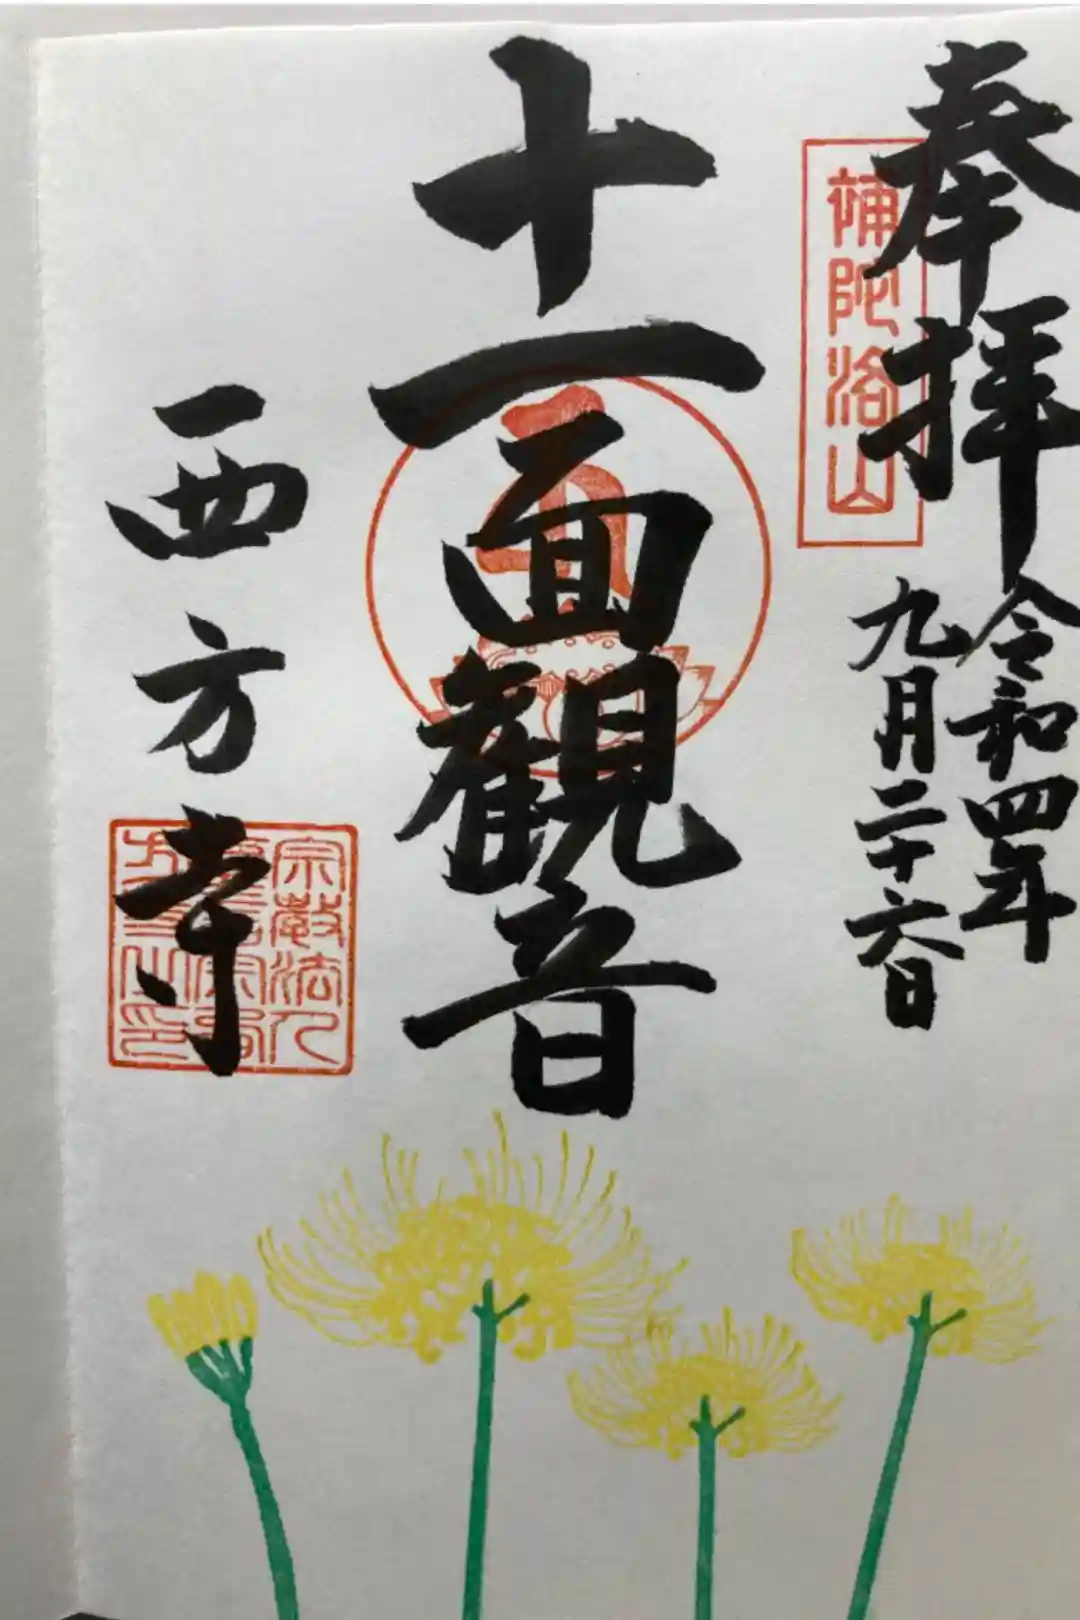 奉拝
補陀洛山
令和四年
九月二十六日
十一面觀音
西方寺
宗教法人